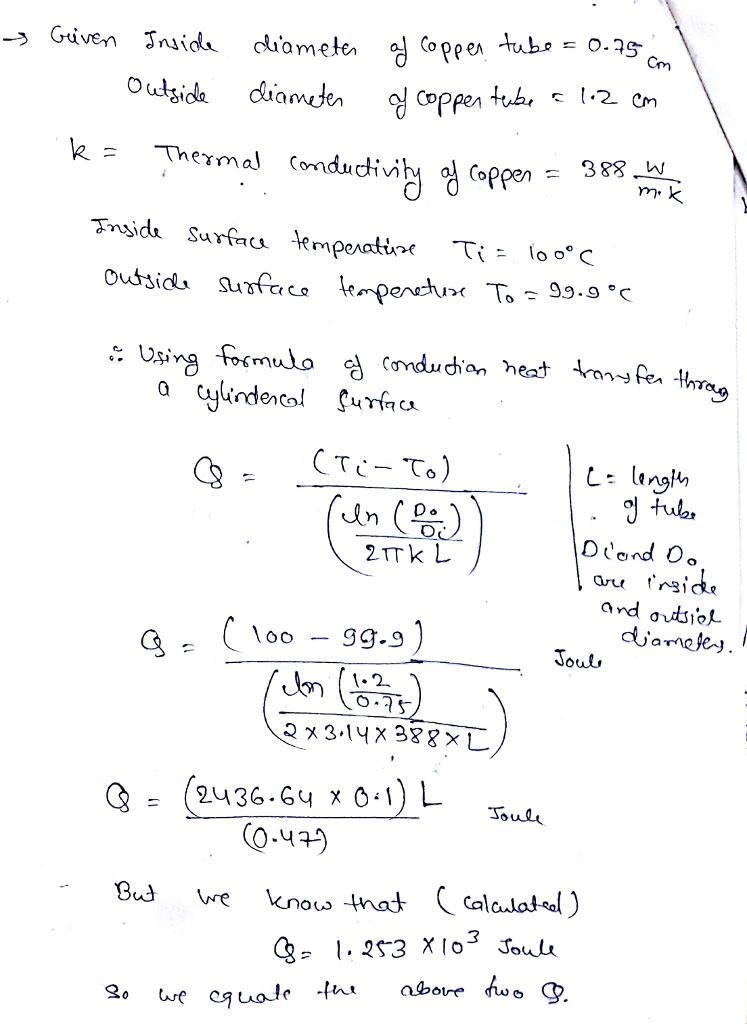 → Given Inside diameter of copper tube = 0.75 cm
Outside diameter of copper tube = 1.2 cm
k = Thermal conductivity of copper = 388 W/m.k
Inside surface temperature Ti = 100°C
Outside surface tempereture To = 99.9°C
∴ Using formula of conduction heat transfer throug
a cylinderical surface
Q = (Ti - To) / (ln (Do/Di) / 2πkL)
L = length
of tube
Di and Do
are inside
and outsid
diameters.
Q = (100 - 99.9) / (ln (1.2/0.75) / 2 x 3.14 x 388 x L) Joule
Q = (2436.64 x 0.1) L / (0.47) Joule
But we know that (calculated)
Q = 1.253 x 10³ Joule
So we equate the above two Q.